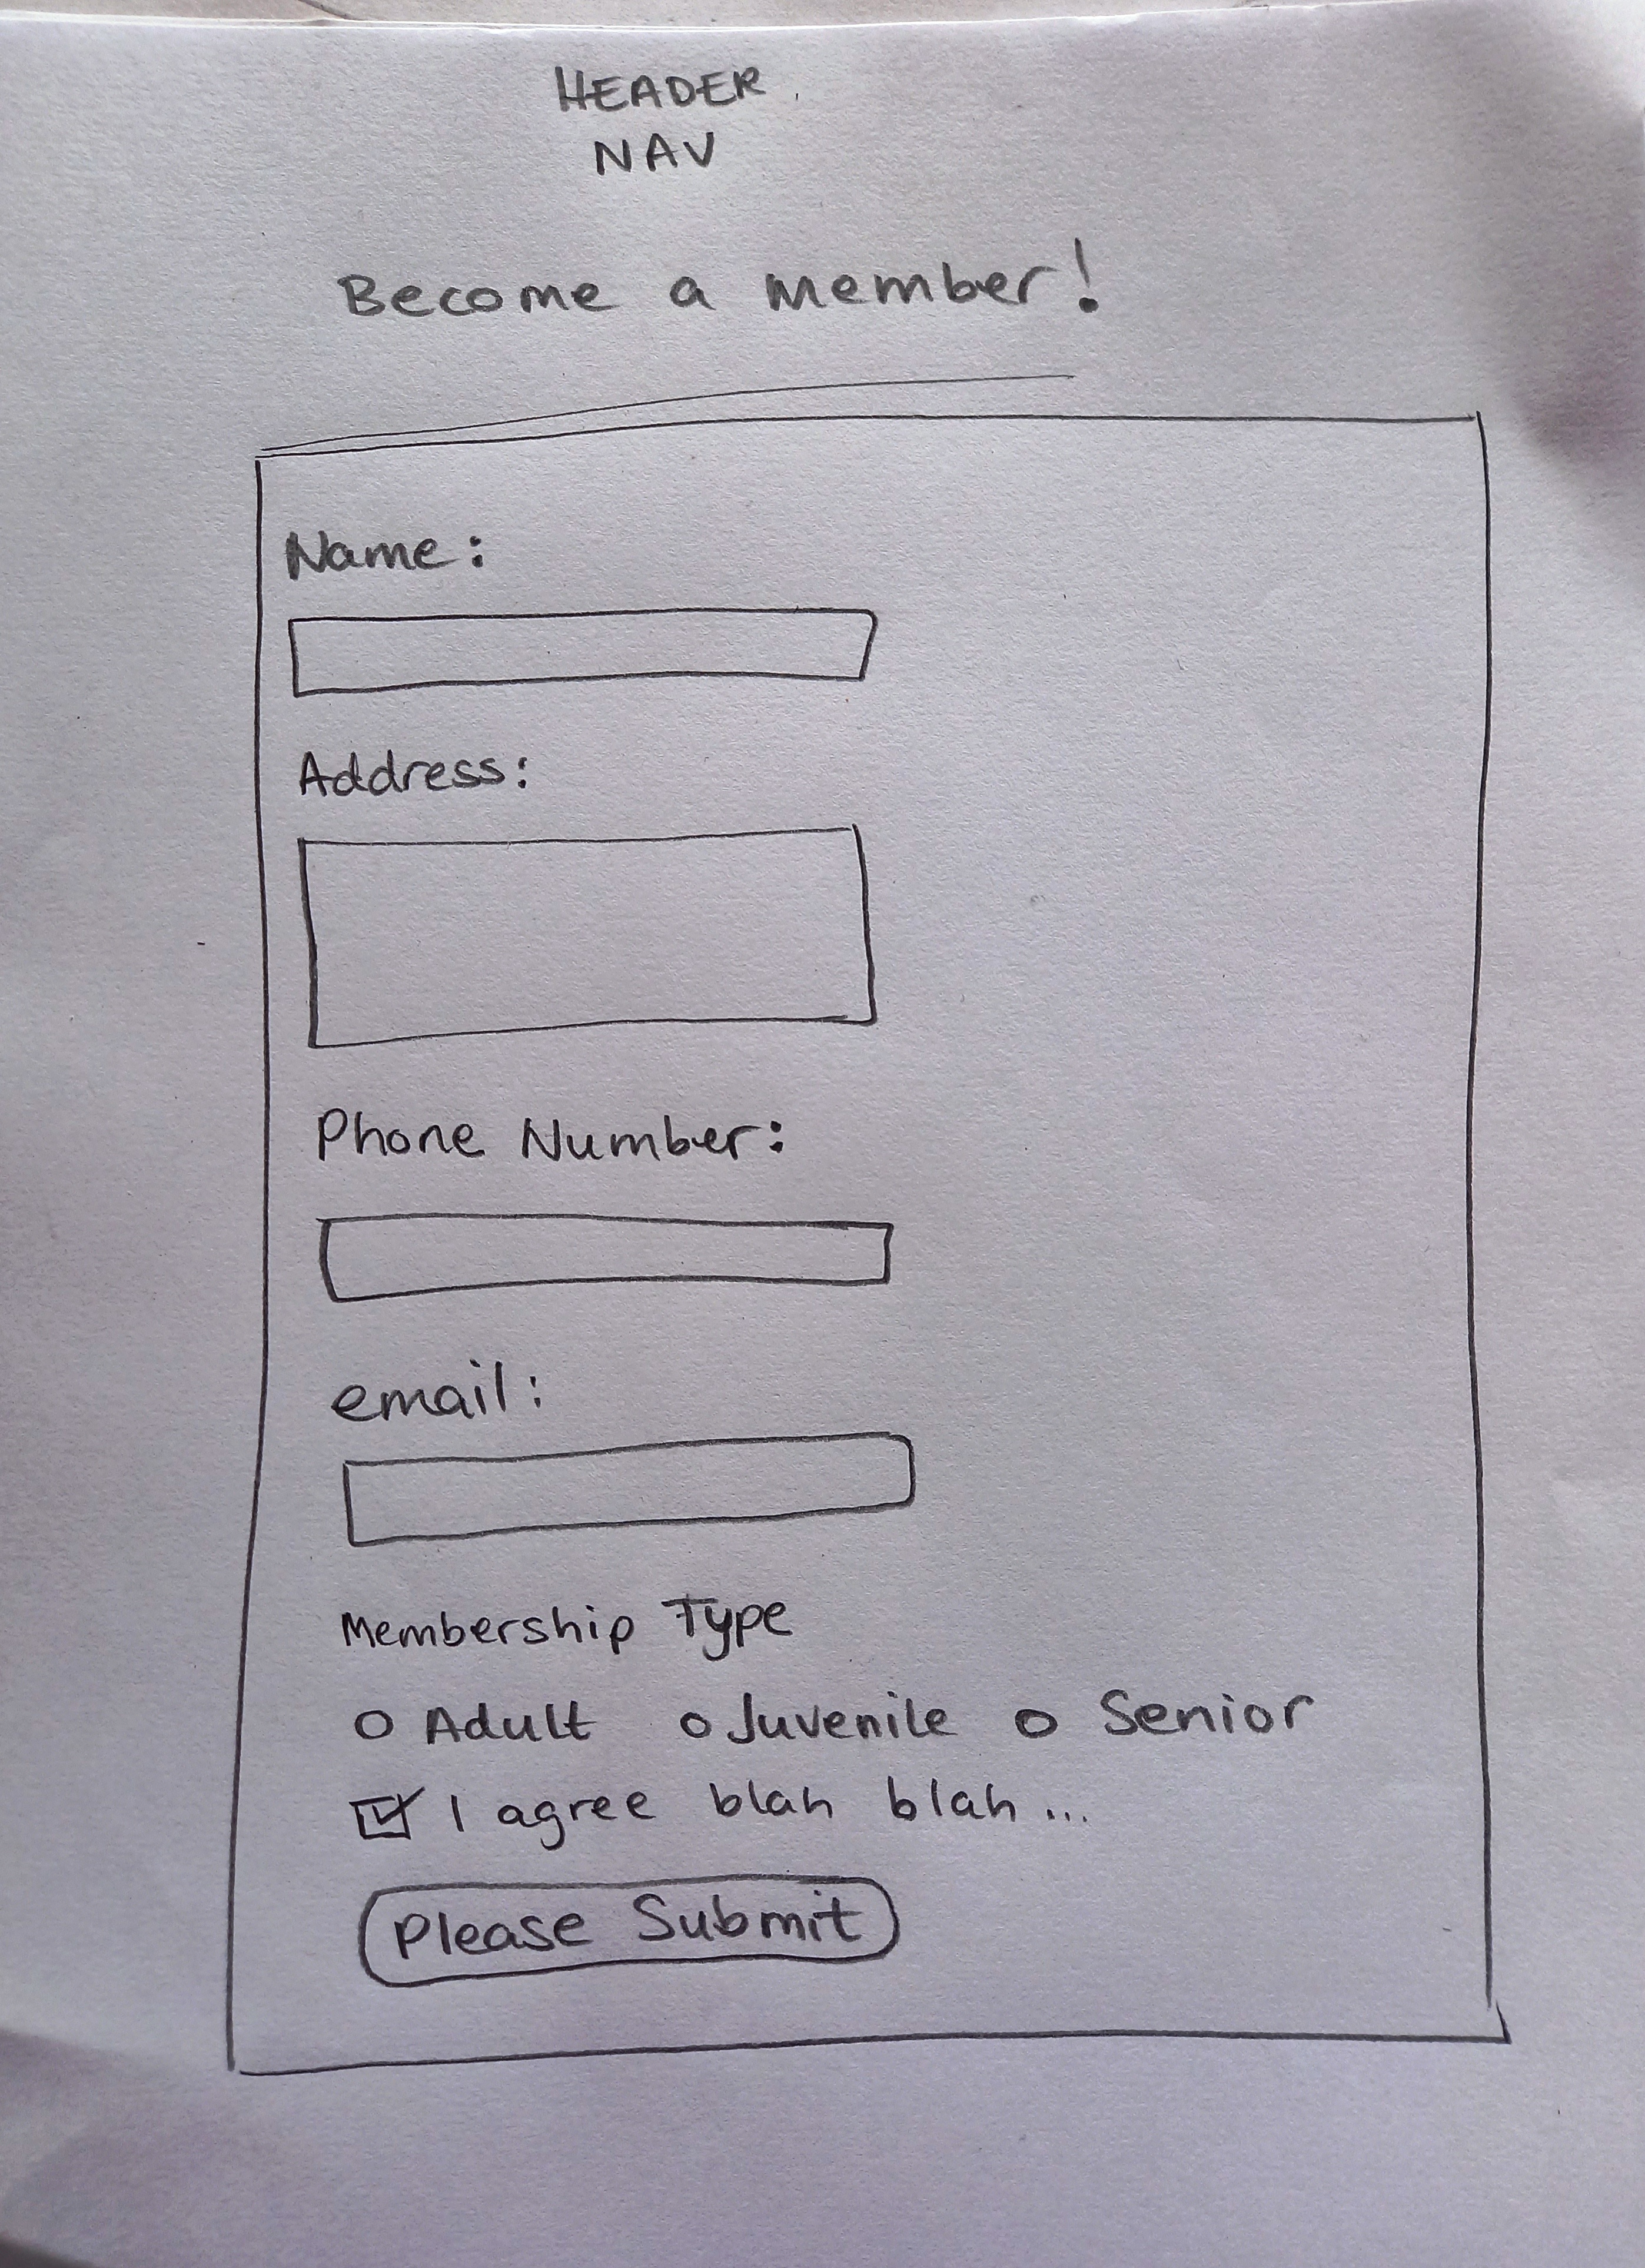 HEADER
NAV
Become a member!
Name:
Address:
Phone Number:
email:
Membership Type
Adult Juvenile Senior
I agree blah blah...
Please Submit